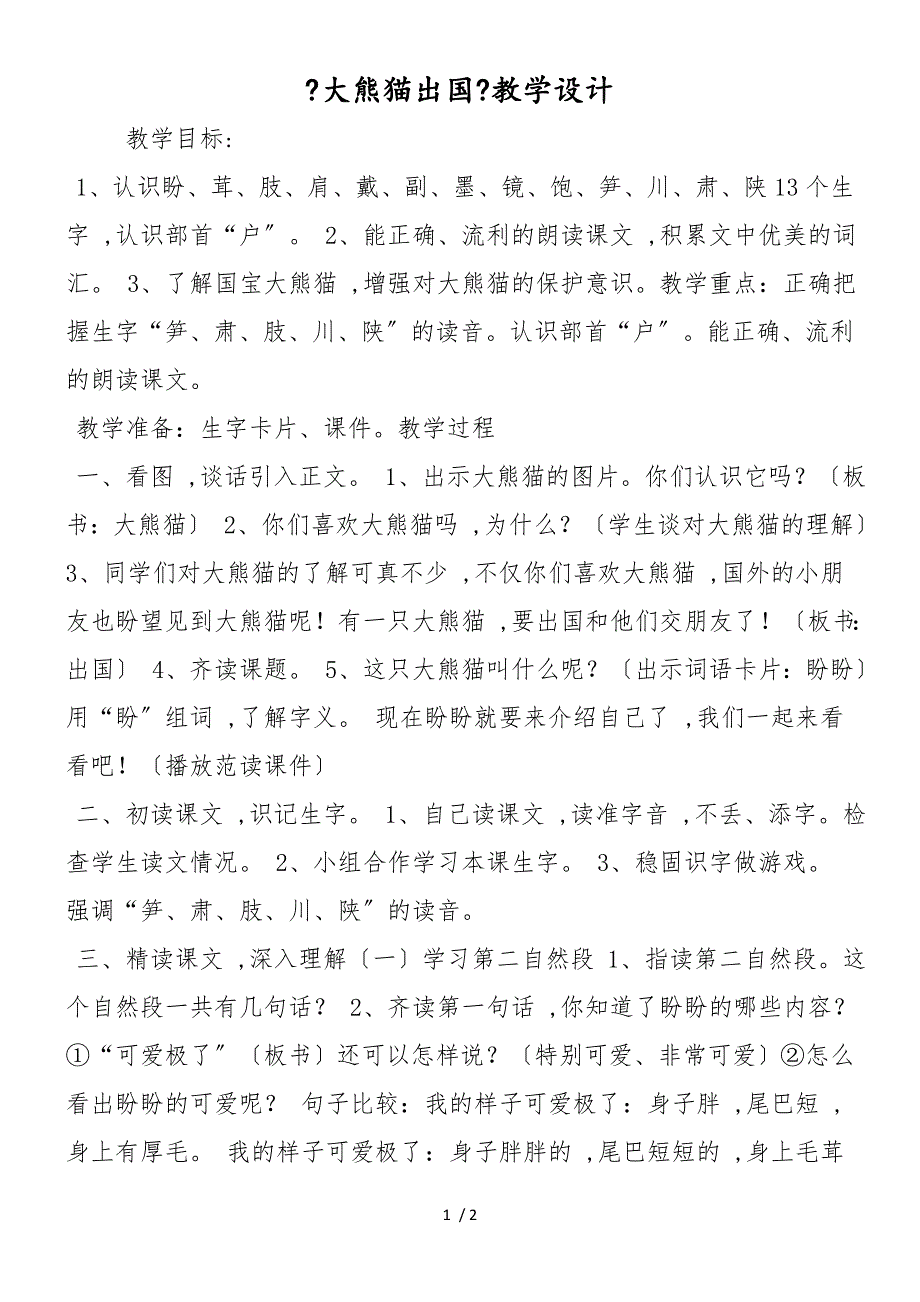 ?大熊猫出国?教学设计
教学目标:
1、认识盼、茸、肢、肩、戴、副、墨、镜、饱、笋、川、肃、陕13个生
字 ,认识部首“户〞。 2、能正确、流利的朗读课文 ,积累文中优美的词
汇。 3、了解国宝大熊猫 ,增强对大熊猫的保护意识。教学重点: 正确把
握生字“笋、肃、肢、川、陕〞的读音。认识部首“户〞。能正确、流利
的朗读课文。
教学准备: 生字卡片、课件。教学过程
一、看图 ,谈话引入正文。 1、出示大熊猫的图片。你们认识它吗? 〔板
书: 大熊猫〕 2、你们喜欢大熊猫吗 ,为什么? 〔学生谈对大熊猫的理解〕
3、同学们对大熊猫的了解可真不少 ,不仅你们喜欢大熊猫 ,国外的小朋
友也盼望见到大熊猫呢! 有一只大熊猫 ,要出国和他们交朋友了! 〔板书:
出国〕 4、齐读课题。 5、这只大熊猫叫什么呢? 〔出示词语卡片: 盼盼〕
用“盼〞组词 ,了解字义。 现在盼盼就要来介绍自己了 ,我们一起来看
看吧! 〔播放范读课件〕
二、初读课文 ,识记生字。 1、自己读课文 ,读准字音 ,不丢、添字。检
查学生读文情况。 2、小组合作学习本课生字。 3、稳固识字做游戏。
强调“笋、肃、肢、川、陕〞的读音。
三、精读课文 ,深入理解〔一〕学习第二自然段 1、指读第二自然段。这
个自然段一共有几句话? 2、齐读第一句话 ,你知道了盼盼的哪些内容?
①“可爱极了〞〔板书〕还可以怎样说? 〔特别可爱、非常可爱〕②怎么
看出盼盼的可爱呢? 句子比较: 我的样子可爱极了: 身子胖 ,尾巴短 ,
身上有厚毛。 我的样子可爱极了: 身子胖胖的 ,尾巴短短的 ,身上毛茸
1 / 2